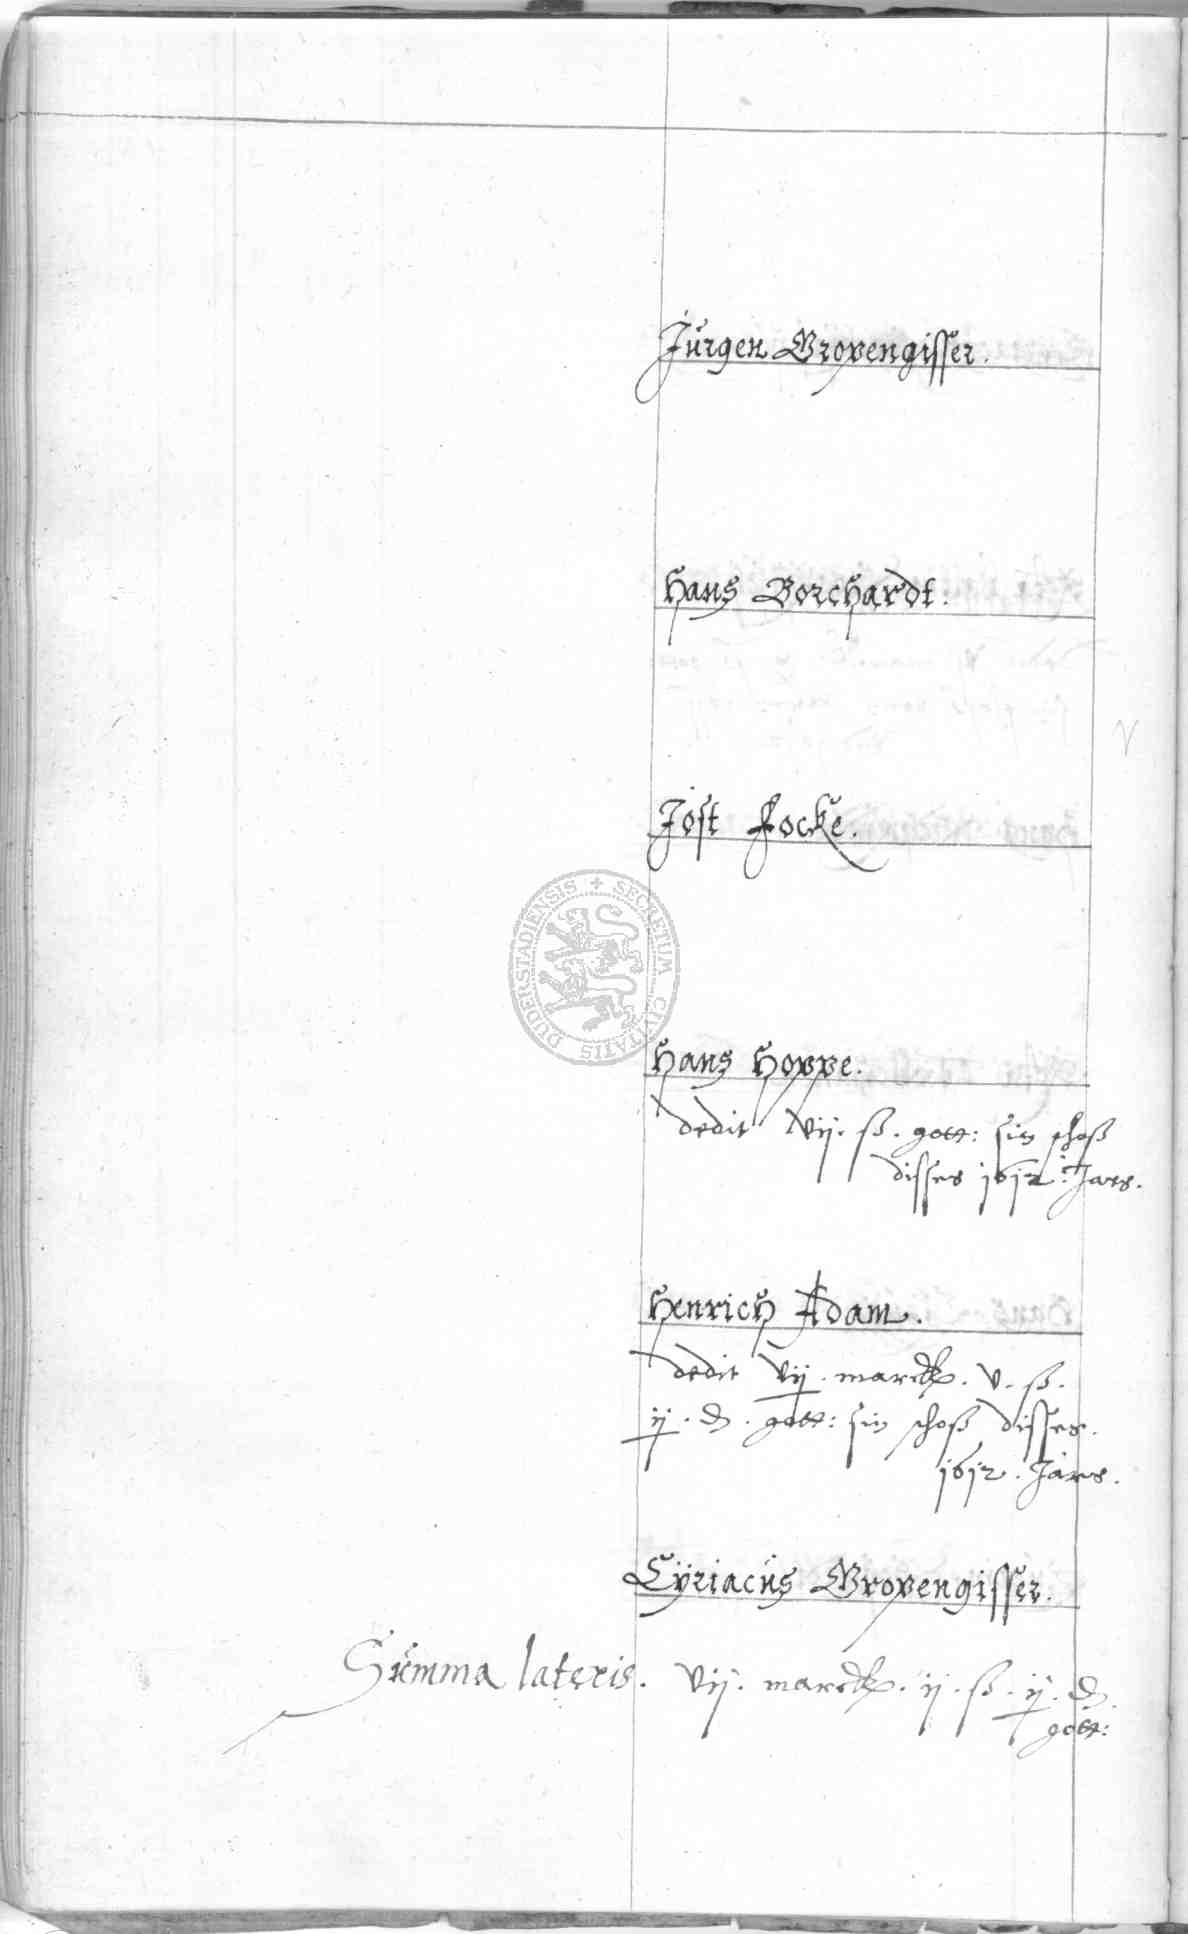 Jürgen Gropengisser.
Hans Borchardt.
Jost Focke.
SECRETUM CIVITATIS DUDERSTADIENSIS
Hans Hoppe.
dedit vij. ß. gott: sin schoß
disses 1612. Jars.
Henrich Adam.
dedit vij. marck. v. ß.
ij. d. gott: sin schoß disses.
1612. Jars.
Cÿriacus Gropengisser.
Summa lateris. vij. marck. ij. ß. ij. d.
gott: